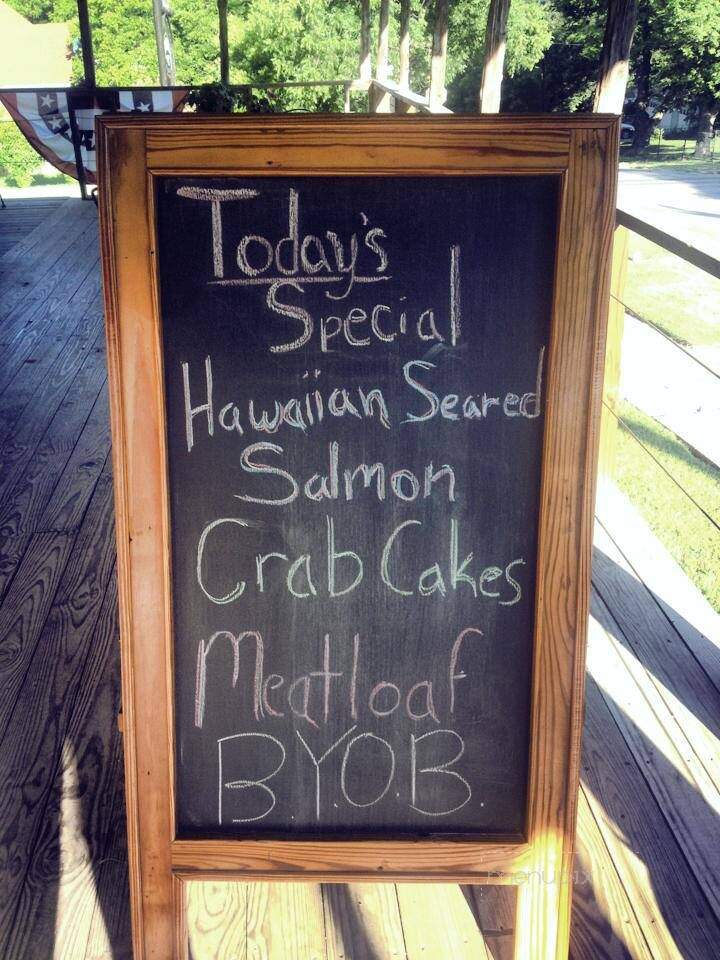 Today's
Special
Hawaiian Seared
Salmon
Crab Cakes
Meatloaf
B.Y.O.B.